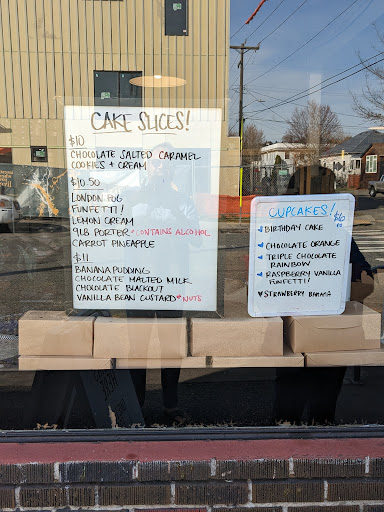 CAKE SLICES!
$10
CHOCOLATE SALTED CARAMEL
COOKIES + CREAM
$10.50
LONDON FOG
FUNFETTI!
LEMON CREAM
9LB PORTER *CONTAINS ALCOHOL
CARROT PINEAPPLE
$11
BANANA PUDDING
CHOCOLATE MALTED MILK
CHOCOLATE BLACKOUT
VANILLA BEAN CUSTARD *NUTS
CUPCAKES! $6
BIRTHDAY CAKE
CHOCOLATE ORANGE
TRIPLE CHOCOLATE
RAINBOW
RASPBERRY VANILLA
FUNFETTI!
STRAWBERRY BANANA